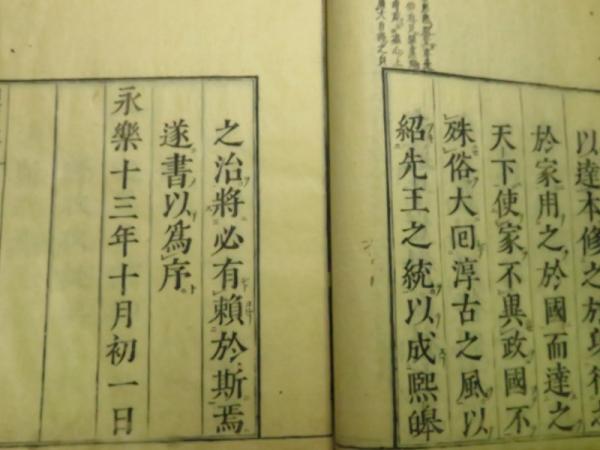 以達本修之於身行之
於家用之於國而達之
天下使家不異政國不
殊俗大回淳古之風以
紹先王之統以成熈皞
之治將必有賴於斯焉
遂書以爲序
永樂十三年十月初一日